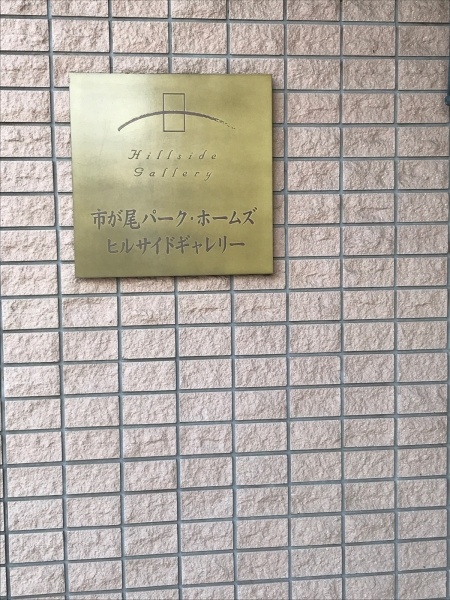 Hillside
Gallery
市が尾パーク・ホームズ
ヒルサイドギャレリー